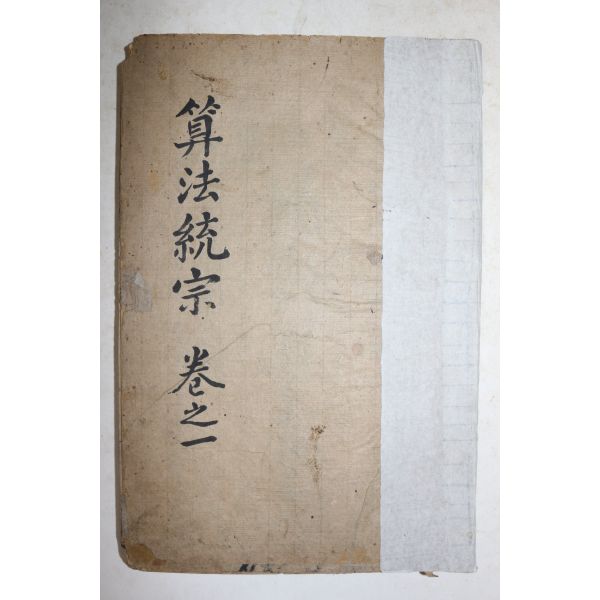 算法統宗 卷之一